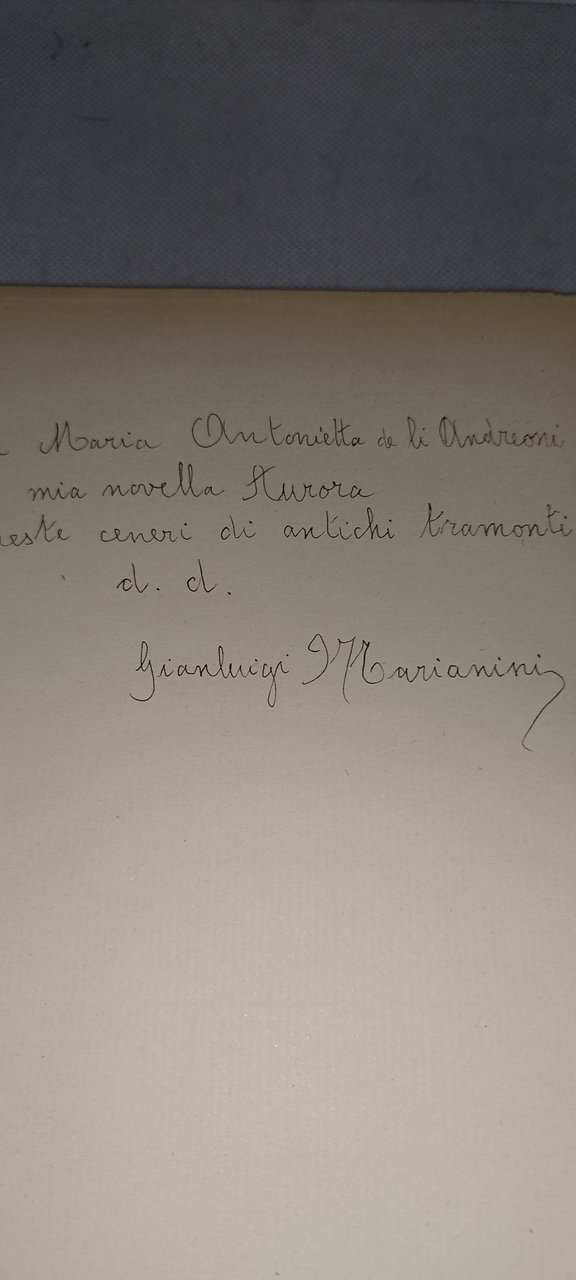 Maria Antonietta de li Andreoni
mia novella Aurora
ueste ceneri di antichi tramonti
d. d.
Gianluigi Marianini